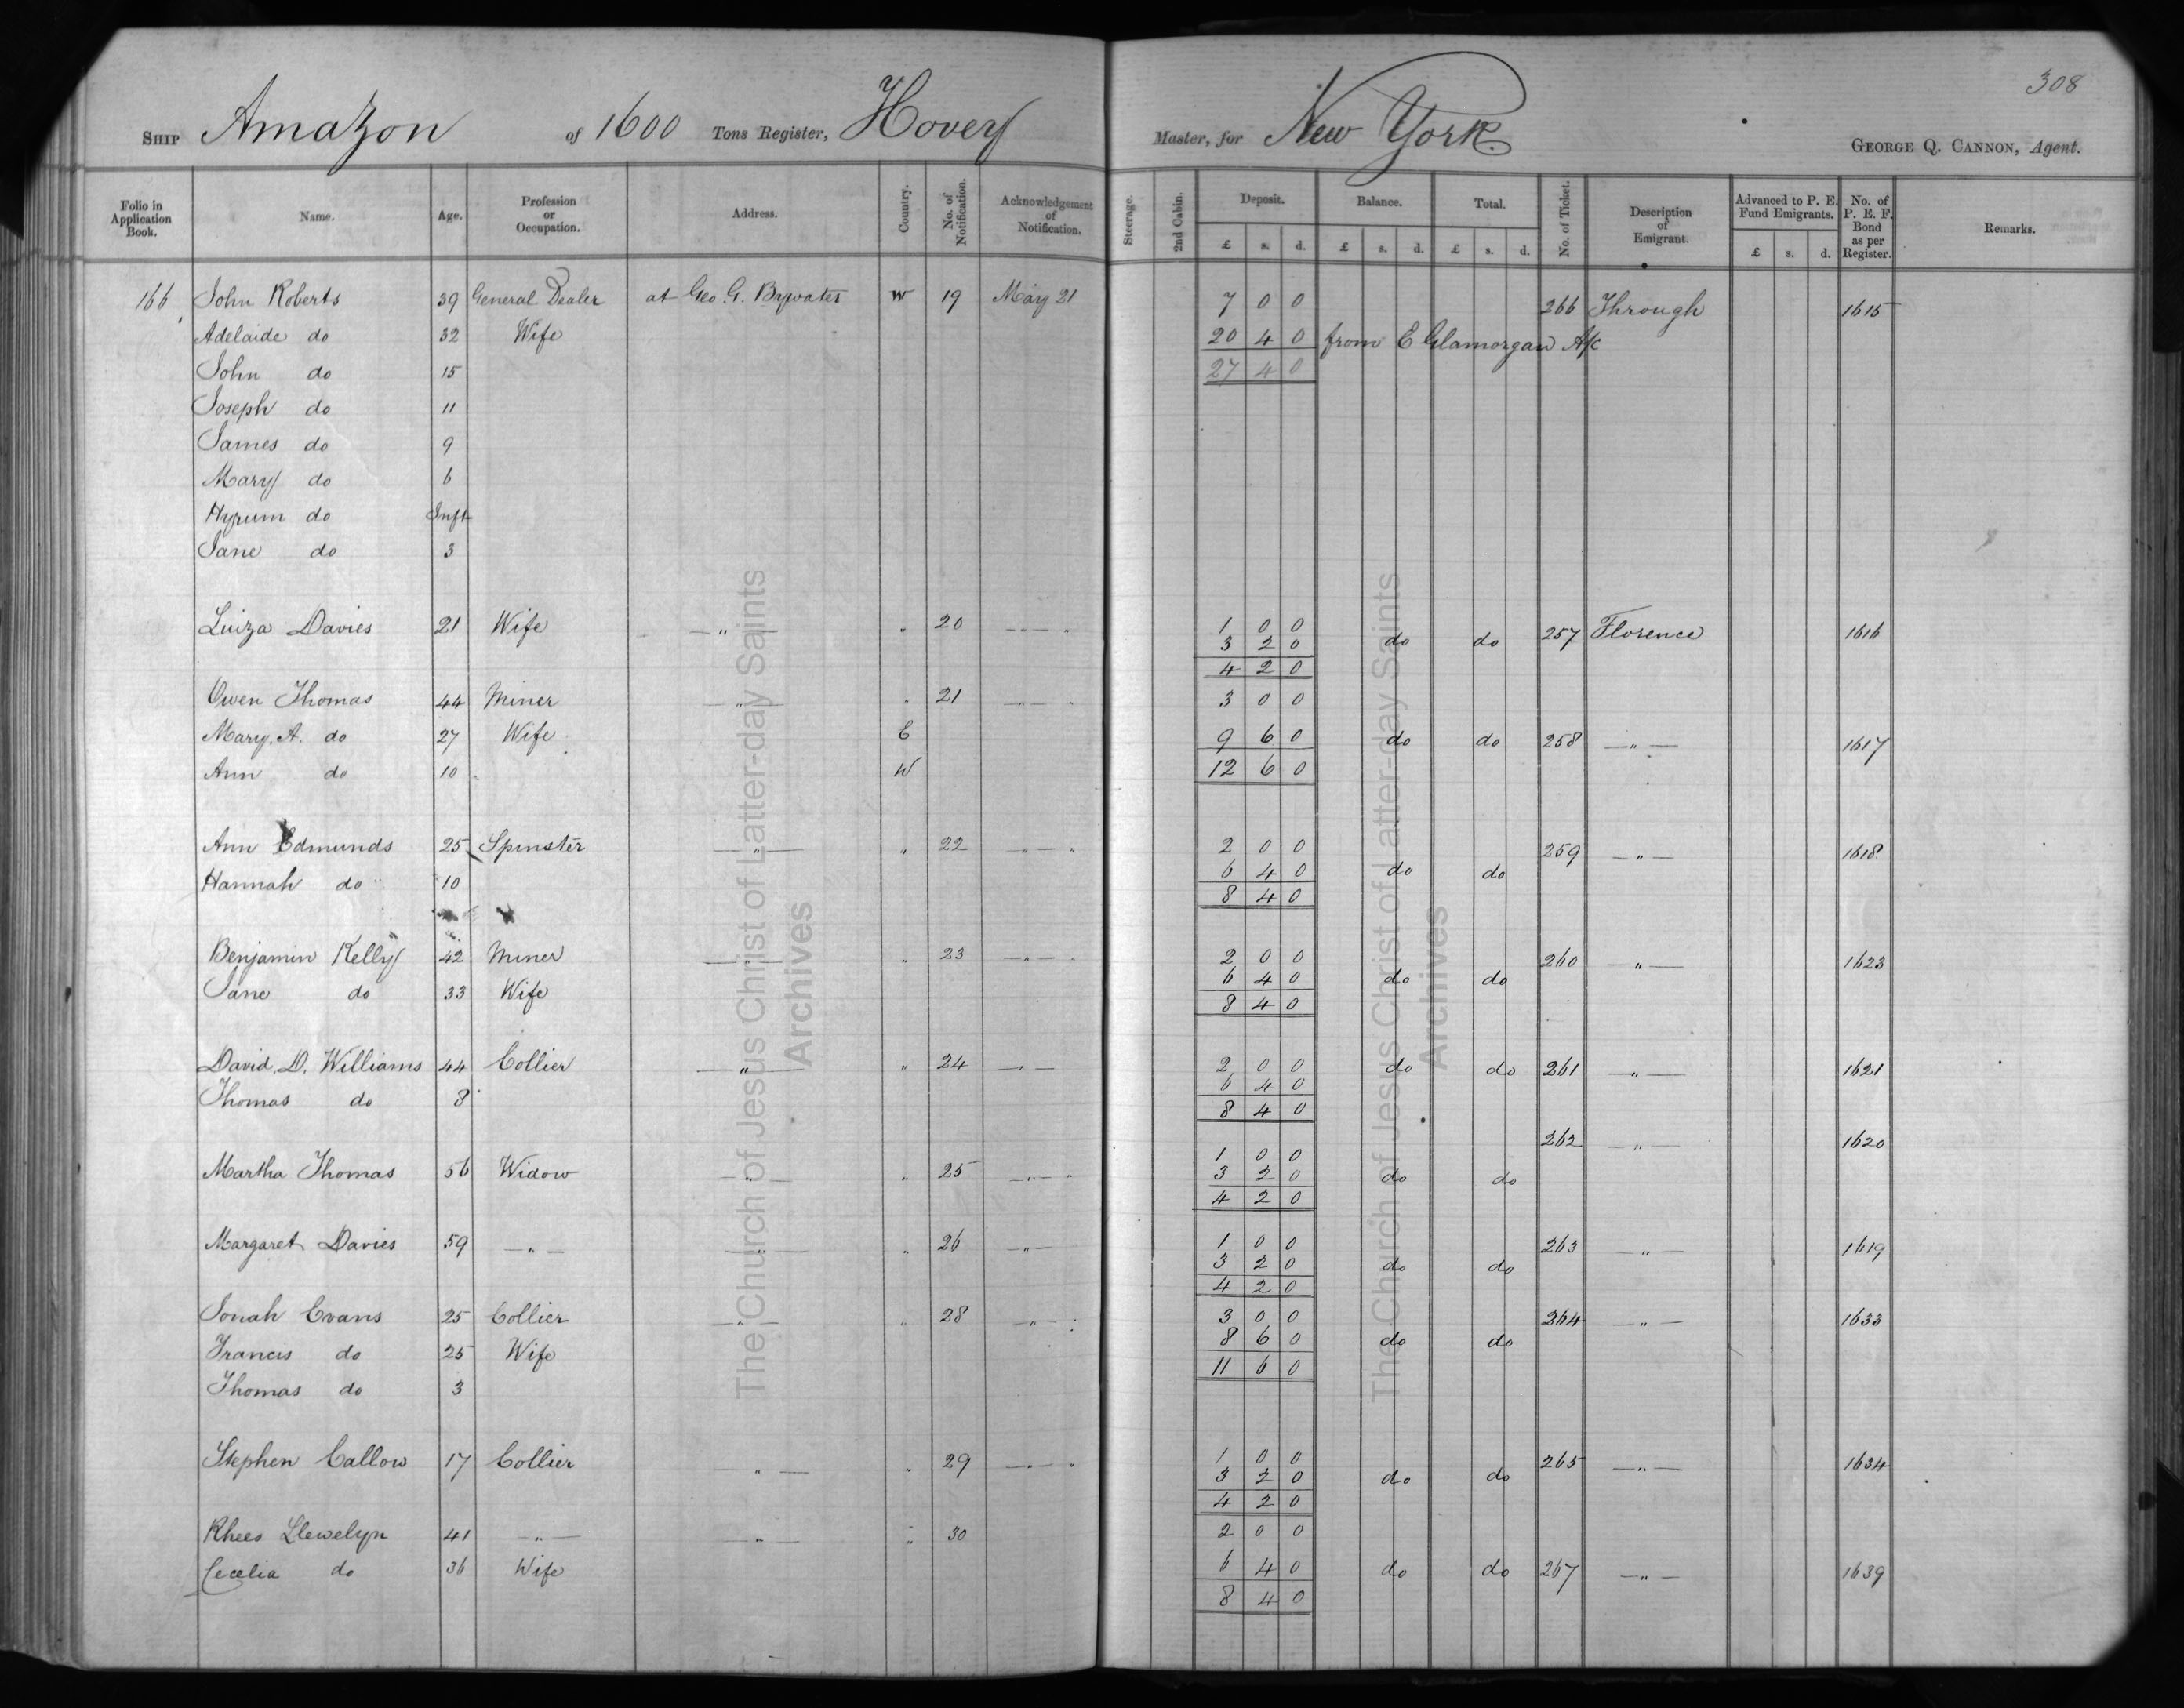 308
SHIP Amazon of 1600 Tons Register, Hovey Master, for New York. GEORGE Q. CANNON, Agent.
Folio in Application Book. Name. Age. Profession or Occupation. Address. Country. No. of Notification. Acknowledgement of Notification. Steerage. 2nd Cabin. Deposit. Balance. Total. No. of Ticket. Description of Emigrant. Advanced to P. E. Fund Emigrants. No. of P. E. F. Bond as per Register. Remarks.
£ s. d. £ s. d. £ s. d. £ s. d.
166 John Roberts 39 General Dealer at Geo. G. Bywater W 19 May 21 7 0 0 266 Through 1615
Adelaide do 32 Wife 20 4 0 from E Glamorgan A/c
John do 15 27 4 0
Joseph do 11
James do 9
Mary do 6
Hyrum do Inft
Jane do 3
Luiza Davies 21 Wife " " 20 " 1 0 0 257 Florence 1616
3 2 0 do do
4 2 0
Owen Thomas 44 Miner " " 21 " 3 0 0
Mary. A. do 27 Wife E 9 6 0 do do 258 " 1617
Ann do 10 W 12 6 0
Ann Edmunds 25 Spinster " " 22 " 2 0 0 259 " 1618
Hannah do 10 6 4 0 do do
8 4 0
Benjamin Kelly 42 Miner " " 23 " 2 0 0 260 " 1623
Jane do 33 Wife 6 4 0 do do
8 4 0
David. D. Williams 44 Collier " " 24 " 2 0 0 do do 261 " 1621
Thomas do 8 6 4 0
8 4 0
262 " 1620
1 0 0
Martha Thomas 56 Widow " " 25 " 3 2 0 do do
4 2 0
Margaret Davies 59 " " " 26 " 1 0 0 263 " 1619
3 2 0 do do
4 2 0
Jonah Evans 25 Collier " " 28 " 3 0 0 264 " 1633
Francis do 25 Wife 8 6 0 do do
Thomas do 3 11 6 0
Stephen Callow 17 Collier " " 29 " 1 0 0 265 " 1634
3 2 0 do do
4 2 0
Rhees Llewelyn 41 " " " 30 2 0 0
Cecelia do 36 Wife 6 4 0 do do 267 " 1639
8 4 0
The Church of Jesus Christ of Latter-day Saints
Archives
The Church of Jesus Christ of Latter-day Saints
Archives